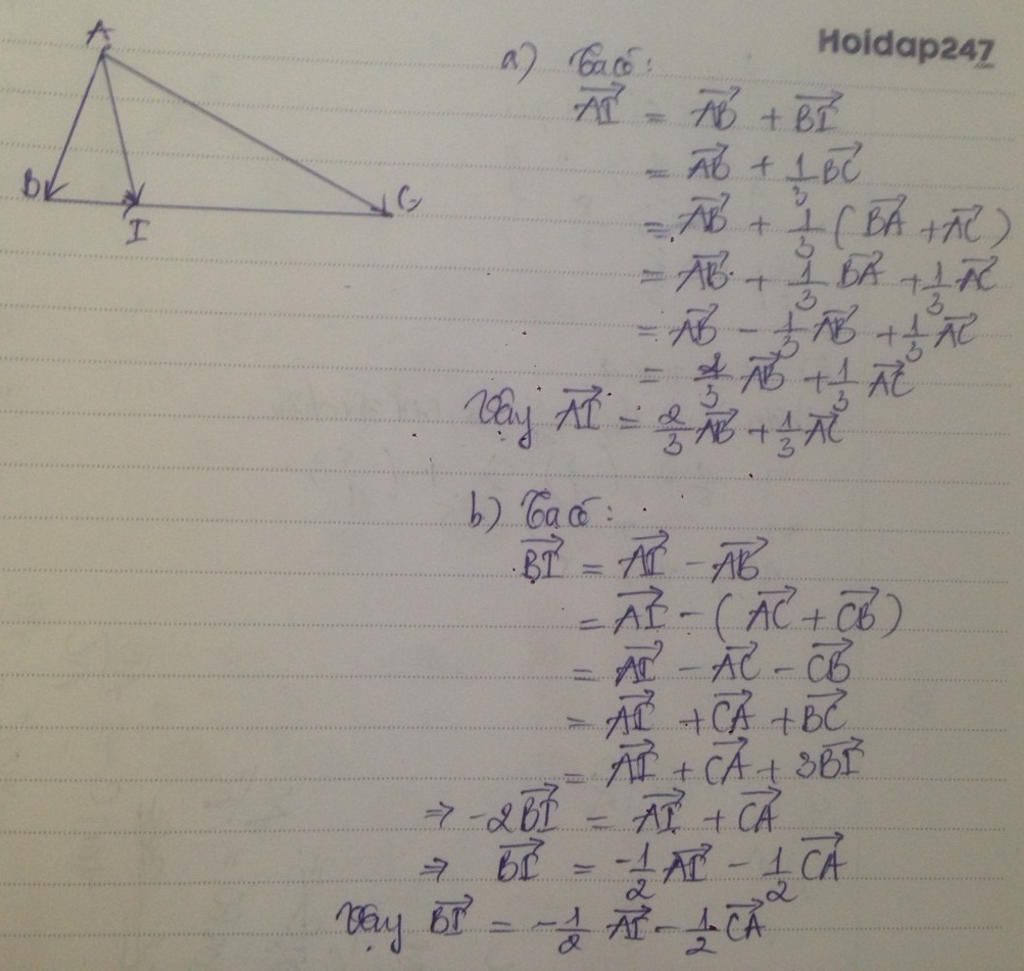 Hoidap247
.com
A
B
I
C
a) Ta có:
$\overrightarrow{AI} = \overrightarrow{AB} + \overrightarrow{BI}$
$= \overrightarrow{AB} + \frac{1}{3}\overrightarrow{BC}$
$= \overrightarrow{AB} + \frac{1}{3}(\overrightarrow{BA} + \overrightarrow{AC})$
$= \overrightarrow{AB} + \frac{1}{3}\overrightarrow{BA} + \frac{1}{3}\overrightarrow{AC}$
$= \overrightarrow{AB} - \frac{1}{3}\overrightarrow{AB} + \frac{1}{3}\overrightarrow{AC}$
$= \frac{2}{3}\overrightarrow{AB} + \frac{1}{3}\overrightarrow{AC}$
Vậy $\overrightarrow{AI} = \frac{2}{3}\overrightarrow{AB} + \frac{1}{3}\overrightarrow{AC}$
b) Ta có:
$\overrightarrow{BI} = \overrightarrow{AI} - \overrightarrow{AB}$
$= \overrightarrow{AI} - (\overrightarrow{AC} + \overrightarrow{CB})$
$= \overrightarrow{AI} - \overrightarrow{AC} - \overrightarrow{CB}$
$= \overrightarrow{AI} + \overrightarrow{CA} + \overrightarrow{BC}$
$= \overrightarrow{AI} + \overrightarrow{CA} + 3\overrightarrow{BI}$
$\Rightarrow -2\overrightarrow{BI} = \overrightarrow{AI} + \overrightarrow{CA}$
$\Rightarrow \overrightarrow{BI} = -\frac{1}{2}\overrightarrow{AI} - \frac{1}{2}\overrightarrow{CA}$
Vậy $\overrightarrow{BI} = -\frac{1}{2}\overrightarrow{AI} - \frac{1}{2}\overrightarrow{CA}$